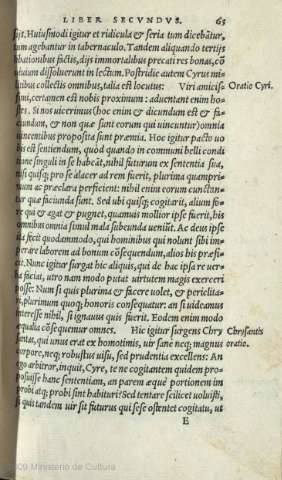 LIBER SECVNDVS. 65
sit. Huiusmodi igitur et ridicula & seria tum dicebātur,
tum agebantur in tabernaculo. Tandem aliquando tertijs
libationibus factis, dijs immortalibus precati res bonas, cō
uiuium dissoluerunt in lectum. Postridie autem Cyrus mi-
litibus collectis omnibus, talia est locutus: Viri amicis-
Oratio Cyri.
simi, certamen est nobis proximum: aduentant enim ho-
stes. Si nos uicerimus (hoc enim & dicundum est & fa-
ciundum, & non quæ sunt eorum qui uincuntur) omnia
uincentibus proposita sunt præmia. Hoc igitur pacto uo
bis est sentiendum, quòd quando in communi belli condi
tione singuli in se habeāt, nihil futuran ex sententia sua,
nisi quisq; pro se alacer ad rem fuerit, plurima quampri-
mum ac præclara perficient: nihil enim eorum cunctan-
tur quæ faciunda sunt. Sed ubi quisq; cogitarit, alium fo-
re qui & agat & pugnet, quamuis mollior ipse fuerit, his
omnibus omnia simul mala subeunda ueniūt. Ac deus ipse
ita fecit quodammodo, qui hominibus qui nolunt sibi im-
perare laborem ad bonum cōsequendum, alios his præfi-
cit. Nunc igitur surgat hic aliquis, qui de hac ipsa re uer-
ba faciat, utro nam modo putat uirtutem magis exerceri
posse: Num si quis plurima & facere uolet, & periclita-
ri, plurimum quoq; honoris consequatur: an si uideamus
interesse nihil, si ignauus quis fuerit. Eodem enim modo
æqualia cōsequemur omnes. Hic igitur surgens Chry
Chrysantis
santas, qui unus erat ex homotimis, uir sanè neq; magnus
oratio.
corpore, neq; robustus uisu, sed prudentia excellens: An
ego arbitror, inquit, Cyre, te ne cogitantem quidem pro-
posuisse hanc sententiam, an parem æquè portionem im
probi atq; probi sint habituri? Sed tentare scilicet uoluisti,
si quis tandem uir sit futurus qui sese ostentet cogitatu, ut
E
009 Ministerio de Cultura